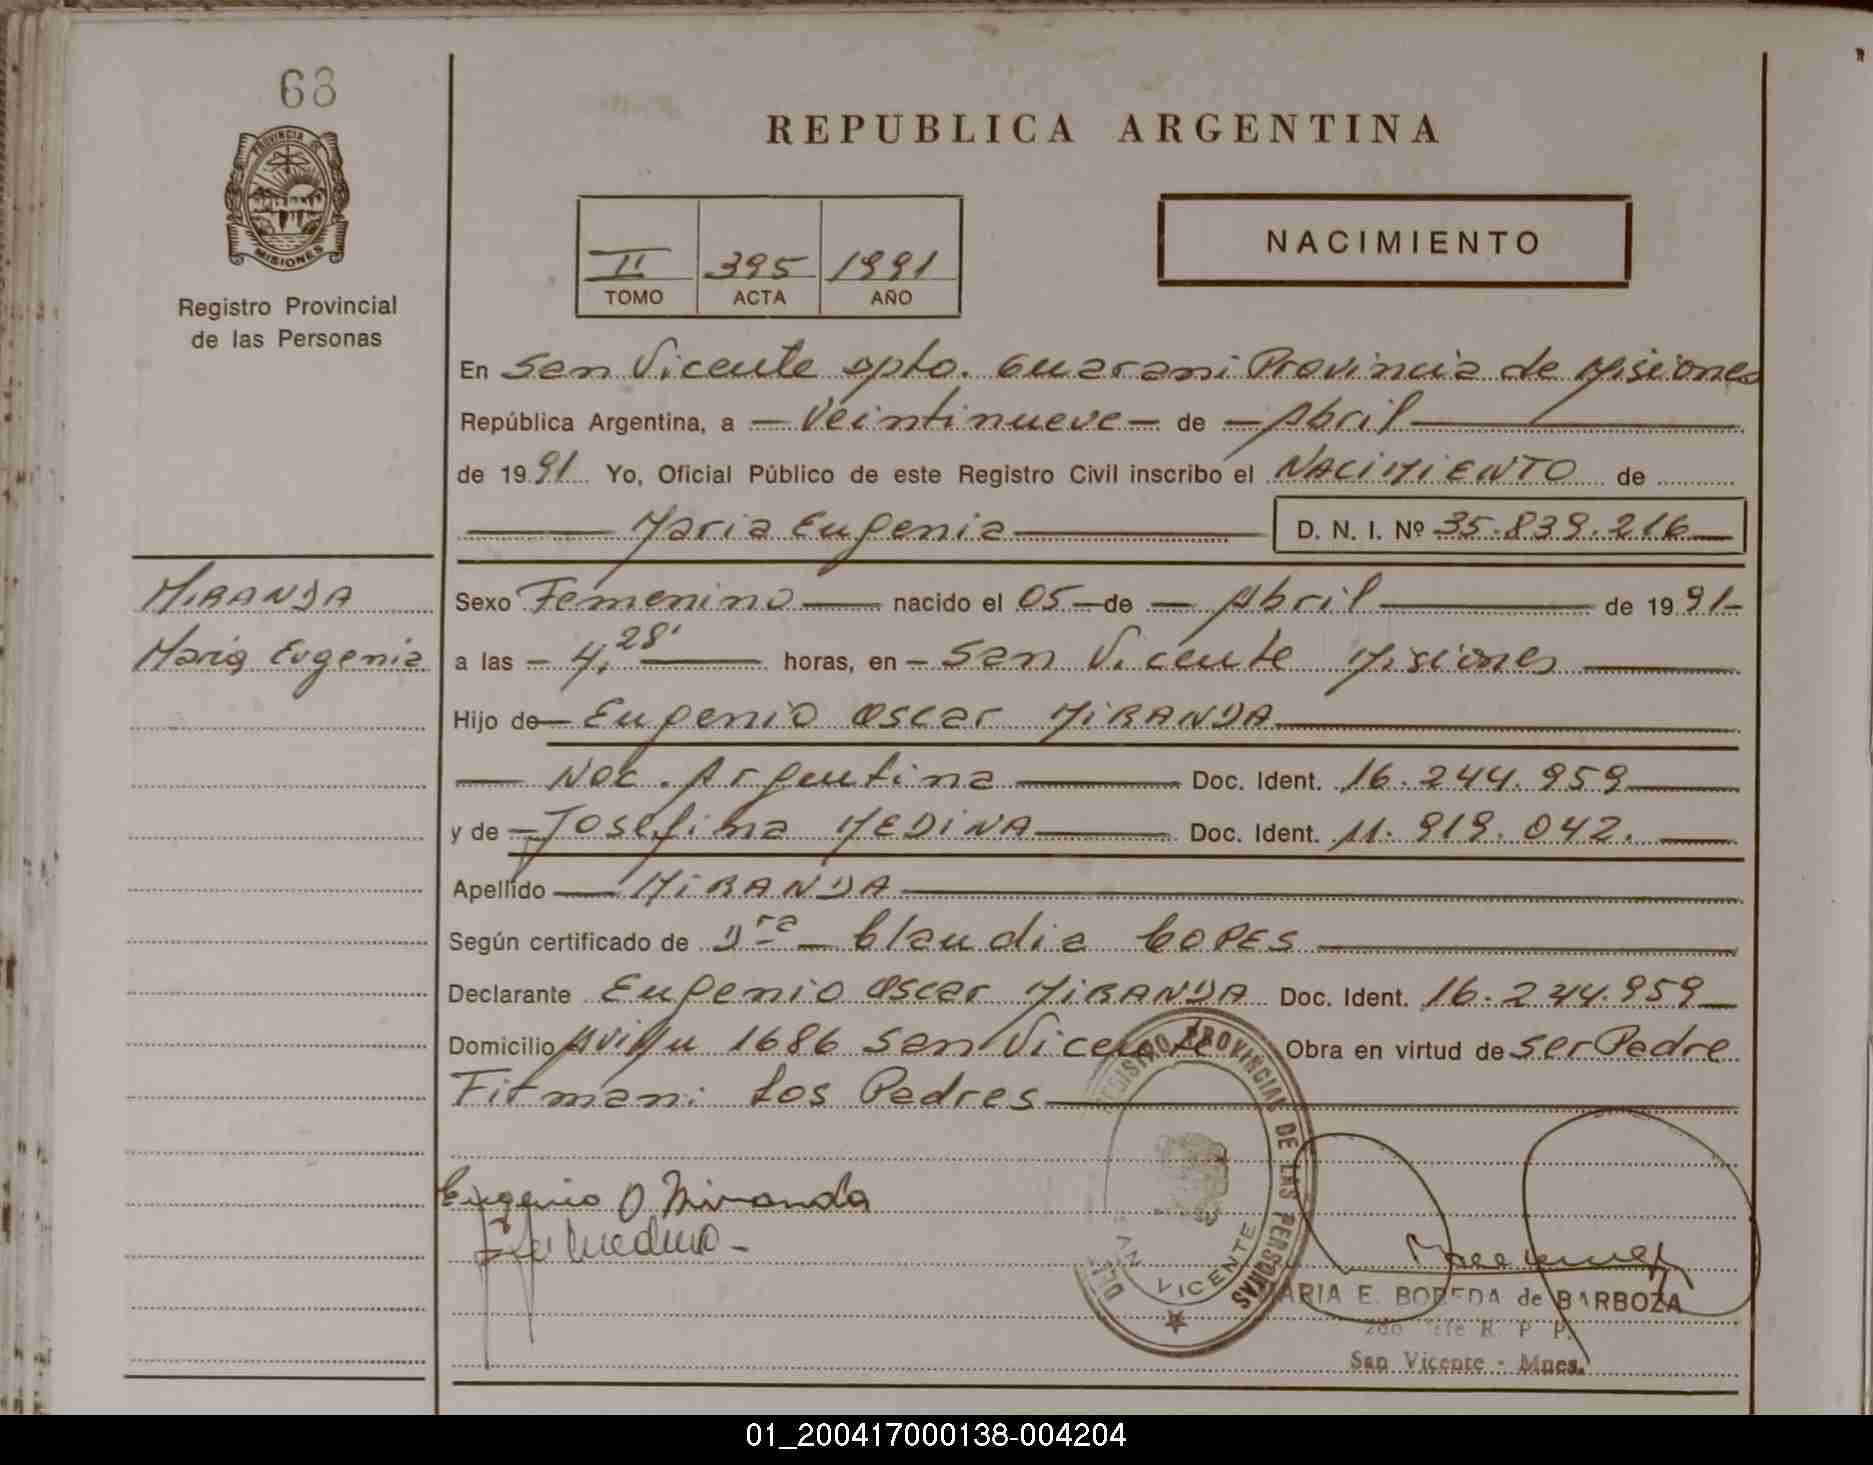 68
PROVINCIA DE
MISIONES
Registro Provincial
de las Personas
MIRANDA
Maria Eugenia
REPUBLICA ARGENTINA
II 395 1991
TOMO ACTA AÑO
NACIMIENTO
En San Vicente Dpto. Guarani Provincia de Misiones
República Argentina, a — Veintinueve — de — Abril
de 1991 Yo, Oficial Público de este Registro Civil inscribo el NACIMIENTO de
Maria Eugenia D. N. I. Nº 35.839.216
Sexo Femenino nacido el 05 — de — Abril de 1991-
a las - 4,28' horas, en - San Vicente Misiones
Hijo de — Eugenio Oscar MIRANDA
Nac. Argentina Doc. Ident. 16.244.959
y de — Josefina MEDINA Doc. Ident. 11.919.042.
Apellido MIRANDA
Según certificado de Dra Claudia COPES
Declarante Eugenio Oscar MIRANDA Doc. Ident. 16.244.959
Domicilio 1686 San Vicente Obra en virtud de ser Padre
Firman: Los Padres
Eugenio O Miranda
REGISTRO PROVINCIAL DE LAS PERSONAS
SAN VICENTE
MARIA E. BOBEDA de BARBOZA
2do Jefe R. P. P.
San Vicente - Mnes.
01_200417000138-004204